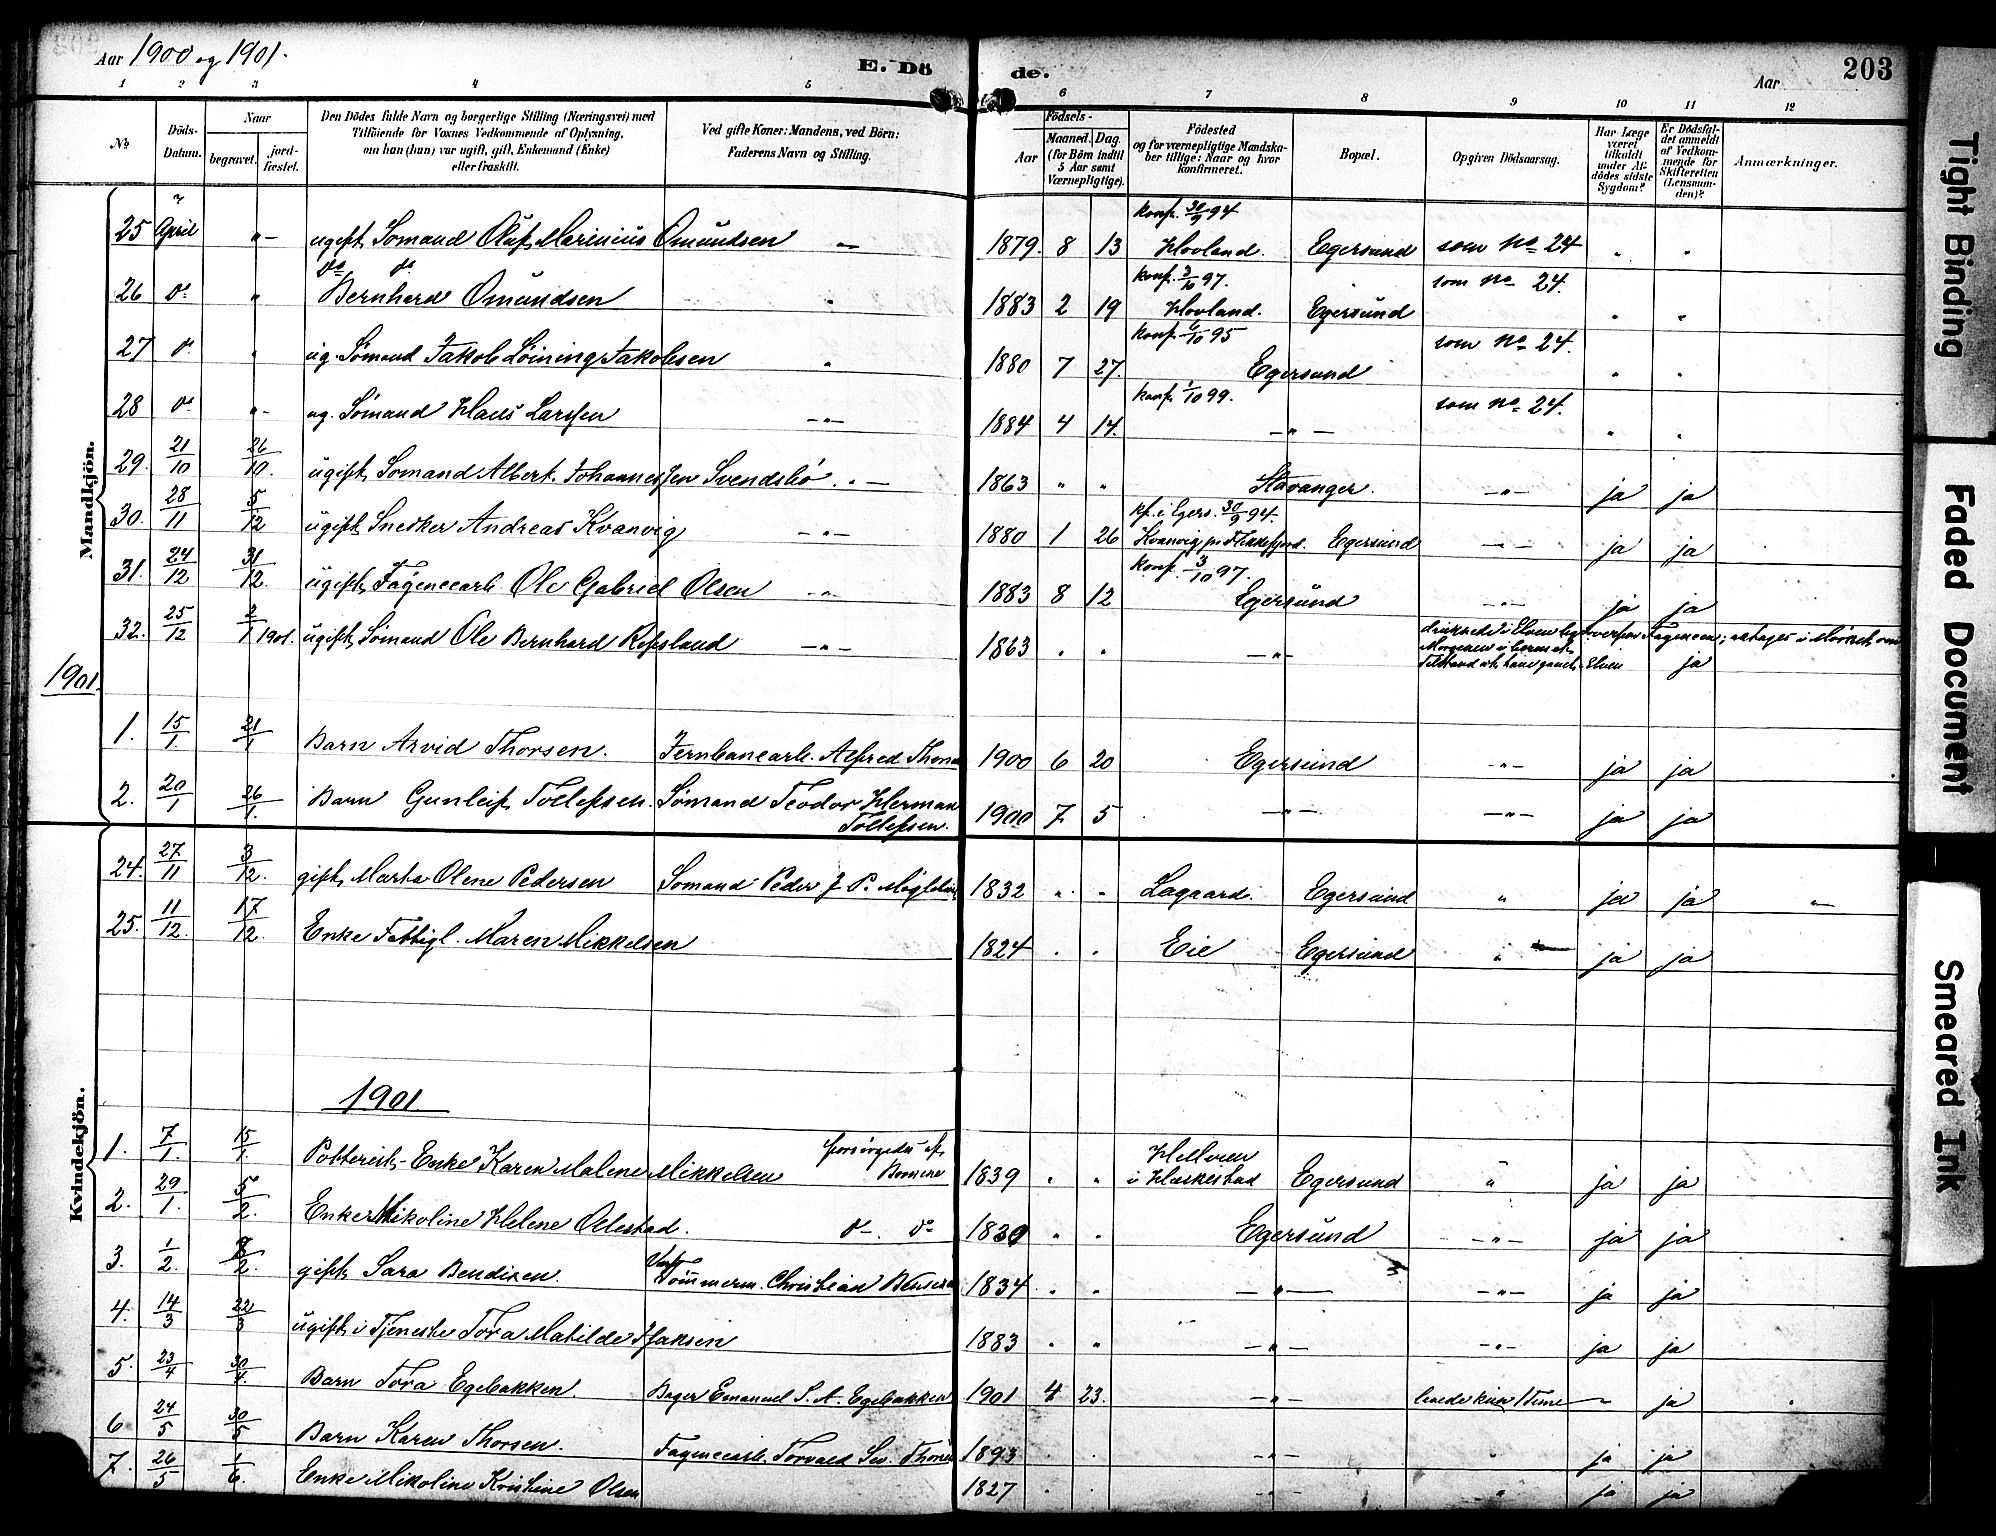 Aar 1900 og 1901.
E. Dö de.
Aar
203
1 2 3 4 5 6 7 8 9 10 11 12
No
Döds-Datum.
Naar
begravet.
jord-fæstet.
Den Dödes fulde Navn og borgerlige Stilling (Næringsvei) med
Tilföiende for Voxnes Vedkommende af Oplysning,
om han (hun) var ugift, gift, Enkemand (Enke)
eller fraskilt.
Ved gifte Koner: Mandens, ved Börn:
Faderens Navn og Stilling.
Födsels-
Aar
Maaned. Dag.
(for Börn indtil
5 Aar samt
Værnepligtige).
Födested
og for værnepligtige Mandska-
ber tillige: Naar og hvor
konfirmeret.
Bopæl.
Opgiven Dödsaarsag.
Har Læge
været
tilkaldt
under Af-
dödes sidste
Sygdom?
Er Dödsfal-
det anmeldt
af Vedkom-
mende for
Skifteretten
(Lensman-
den)?
Anmærkninger.
Mandkjön.
25 April " - ugift Sømand Oluf Marinius Omundsen - " - 1879. 8 13 konf. 30/9 94 Hovland. Egersund som No 24 " "
26 do " do do Bernhard Omundsen " 1883 2 19 konf. 3/10 97. Hovland. Egersund som No 24. " "
27 do " ug. Sømand Jakob Löining Jakobsen " 1880 7 27. konf. 6/10 95 Egersund som No 24. " "
28 do " - ug. Sømand Hans Larssen - " - 1884 4 14. konf. 1/10 99. - " - som No 24. " "
29. 21/10 26/10. ugift Sømand Albert Johannessen Svendsbö. " - 1863 " " Stavanger. - " - ja ja
30. 28/11 5/12 ugift Snedker Andreas Kvanvig - " - 1880 1 26 kf. i Egers. 30/9 94. Kvanvig pr Flekkefjord. Egersund - " - ja ja
31. 24/12 31/12. ugift Fagencearb. Ole Gabriel Olsen - " - 1883 8 12 konf. 3/10 97. Egersund - " - ja ja
32. 25/12 2/1 1901. ugift Sømand Ole Bernhard Refsland - " - 1863 " " - " - druknede i Elven overfor Fagencen; antages i Mörket om
Morgenen i
Tilstand at have gaaet i Elven ja
1901.
1. 15/1. 21/1 Barn Arvid Thorsen. Jernbanearb. Alfred 1900 6 20 Egersund - " - ja ja
2. 20/1 26/1. Barn Gunleif Tollefsen. Sømand Teodor Herman
Tollefsen. 1900 7 5 - " - - " - ja ja
Kvindekjön.
24. 27/11 3/12. gift Marta Olene Pedersen Sømand Peder J P. 1832 " " Lagaard. Egersund " ja ja - " -
25. 11/12 17/12. Enke Fattigl. Maren Mikkelsen 1824 " " Eie Egersund " ja ja
1901
1. 7/1. 15/1. Enke Karen Malene Mikkelsen forsörgedes af
Bornene 1839 " " Hellvren
i Heskestad Egersund " ja ja
2. 29/1. 5/2. Enke Nikoline Helene Aalestad. do - do 1830 " " Egersund - " - ja ja
3. 1/2. 8/2. gift Sara Bendixen. Tömmerm. Christian 1834 " " - " - - " - ja ja
4. 14/3 22/3 ugift i Tjeneste Tora Matilde Isaksen 1883 " " - " - - " - ja ja
5. 23/4 30/4. Barn Tora Egebakken. Bager Emanuel S. A. Egebakken 1901 4 23. - " - levede kun 1 Time - ja "
6 24/5 30/5 Barn Karen Thorsen. Fagencearb. Torvald Sev. 1893 - " - " ja ja
7. 26/5 1/6. Enke Nikoline Kristine Olsen 1827 " ja ja
Tight Binding
Faded Document
Smeared Ink